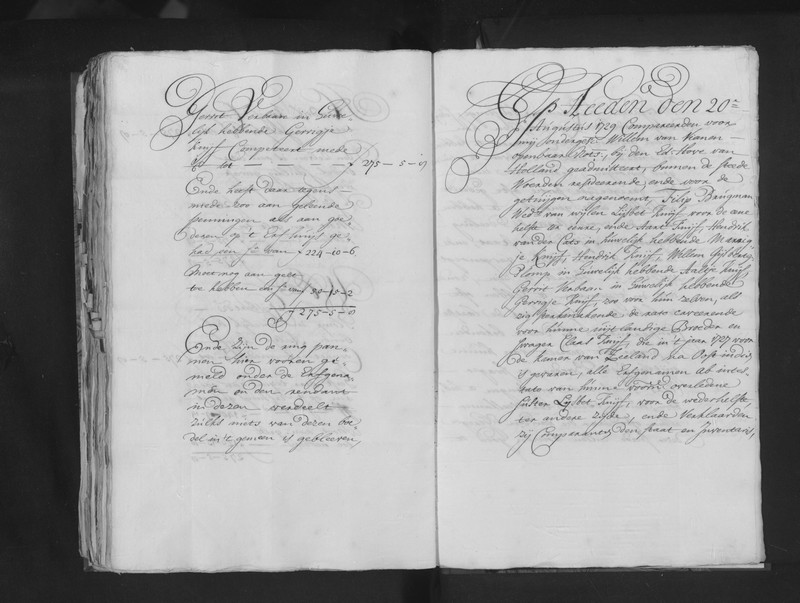 Gerrit Verbaan in huwe-
lijk hebbende Gerregje
Kruijf Competeert mede
tot - - - - - f 275-5-0
Ende heeft daar tegens
mede zoo aan geleende
penningen als aan goe-
deren op 't Erfhuijs ge-
had een somme van f 224-10-6
Moet nog aan gelt
te hebben
f 275-5-0
Ende zijn de ring pan-
nen hier vooren ge-
meld onder de Erfgena-
men en den rendant
in dezen verdeelt
zulks niets van dezen boe-
del in 't gemeen is gebleeven,
Op Heeden den 20en
Augustus 1729 Compareerden voor
mij ondergeschr: Willem van Kanen
openbaar Nots, bij den Ed: Hove van
Holland geadmitteert, binnen de stede
Woerden resideerende, ende voor de
getuijgen nagenoemt, Filip Brugman
Wedr van wijlen Lijsbet Kruijf voor de eene
helfte ter eenre, ende Aart Kruijf, Hendrik
van der Cats in huwelijk hebbende Marrig-
je Kruijf, Hendrik Kruijf, Willem Gijsbertsz
Plomp in huwelijk hebbende Aaltje Kruijf,
Gerrit Verbaan in huwelijk hebbende
Gerregje Kruijf, zoo voor hun zelven, als
zig sterkmakende, de rato caveerende
voor hunne uijtlandige Broeder en
Swager Claas Kruijf, die in 't jaar 1727 voor
de kamer van Zeeland na Oost-indien
is gevaren, alle Erfgenamen ab intes-
tato van hunne voorn: overledene
suster Lijsbet Kruijf, voor de wederhelfte
ter andere zijde, ende Verklaarden
zij Comparanten, den staat en Inventaris,